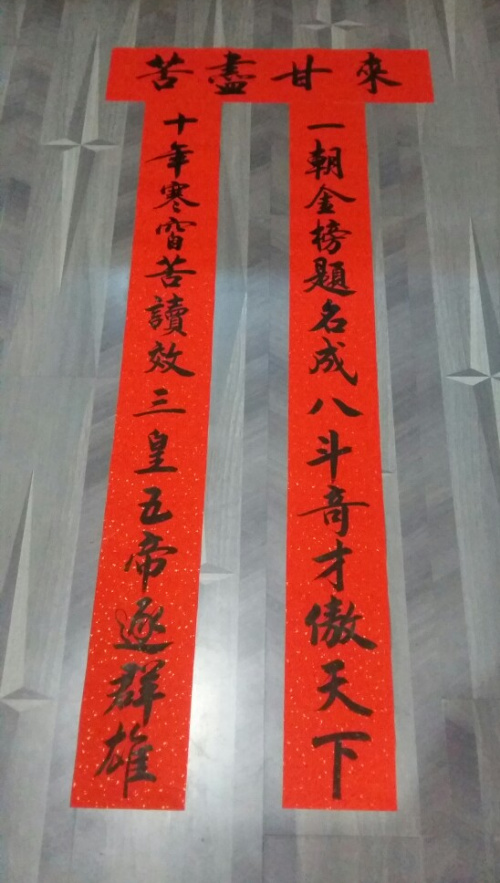 苦盡甘來
十年寒窗苦讀效三皇五帝逐群雄
一朝金榜題名成八斗奇才傲天下